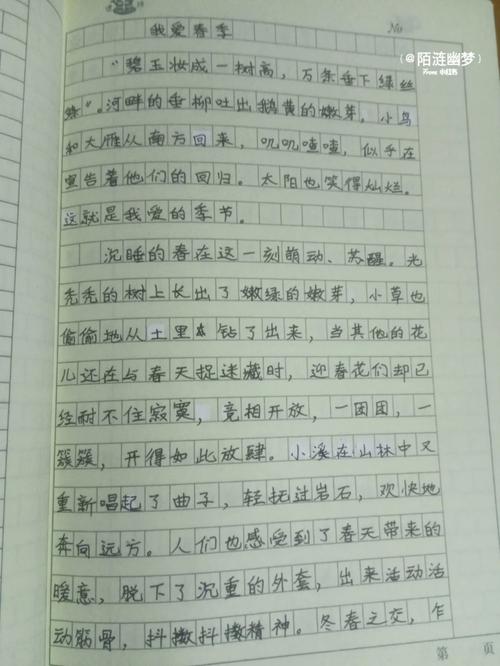 我爱春季
No
@陌涟幽梦
From 小红书
“碧玉妆成一树高，万条垂下绿丝
绦”。河畔的垂柳吐出鹅黄的嫩芽，小鸟
和大雁从南方回来，叽叽喳喳，似乎在
宣告着他们的回归。太阳也笑得灿烂。
这就是我爱的季节。
沉睡的春在这一刻萌动、苏醒。光
秃秃的树上长出了嫩绿的嫩芽，小草也
偷偷地从土里钻了出来，当其他的花
儿还在与春天捉迷藏时，迎春花们却已
经耐不住寂寞，竞相开放，一团团，一
簇簇，开得如此放肆。小溪在山林中又
重新唱起了曲子，轻抚过岩石，欢快地
奔向远方。人们也感受到了春天带来的
暖意，脱下了沉重的外套，出来活动活
动筋骨，抖擞抖擞精神。冬春之交，乍
第 页